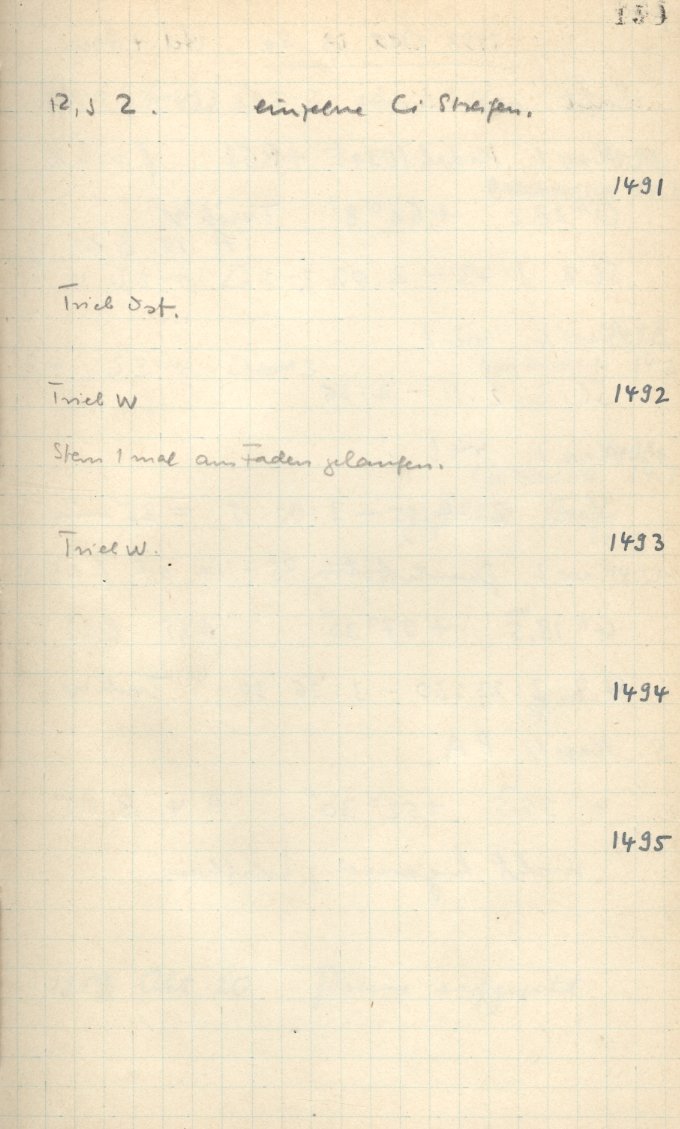 einzelne Ci Streifen.
1491
Trieb Ost.
Trieb W 1492
Stern 1 mal am Faden gelaufen.
Trieb W. 1493
1494
1495